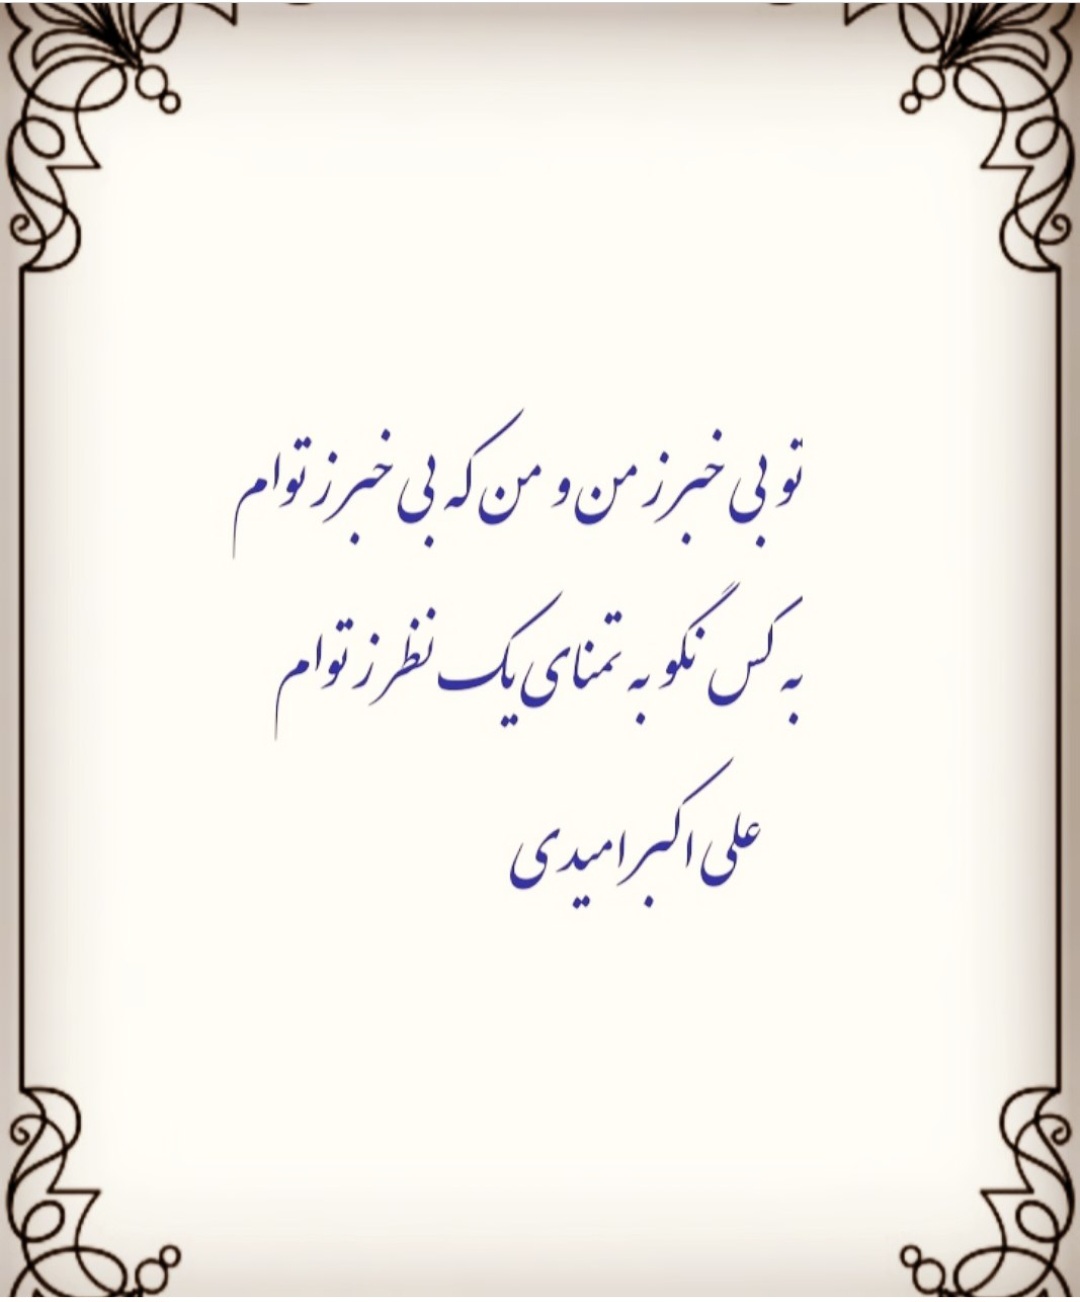 تو بی خبر ز من و من که بی خبر ز توام
به کس نگو به تمنای یک نظر ز توام
علی اکبر امیدی